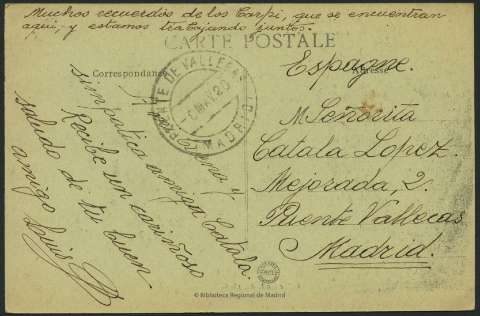 Muchos recuerdos de los Carpi, que se encuentran
aqui, y estamos trabajando juntos.
CARTE POSTALE
Correspondance
Adresse
PUENTE DE VALLECAS
MADRID
A y
simpatica amiga Catala.
Recibe un cariñoso
saludo de tu buen
amigo Luis
Espagne.
M Señorita
Catala Lopez.
Mejorada, 2.
Puente Vallecas
Madrid.
© Biblioteca Regional de Madrid